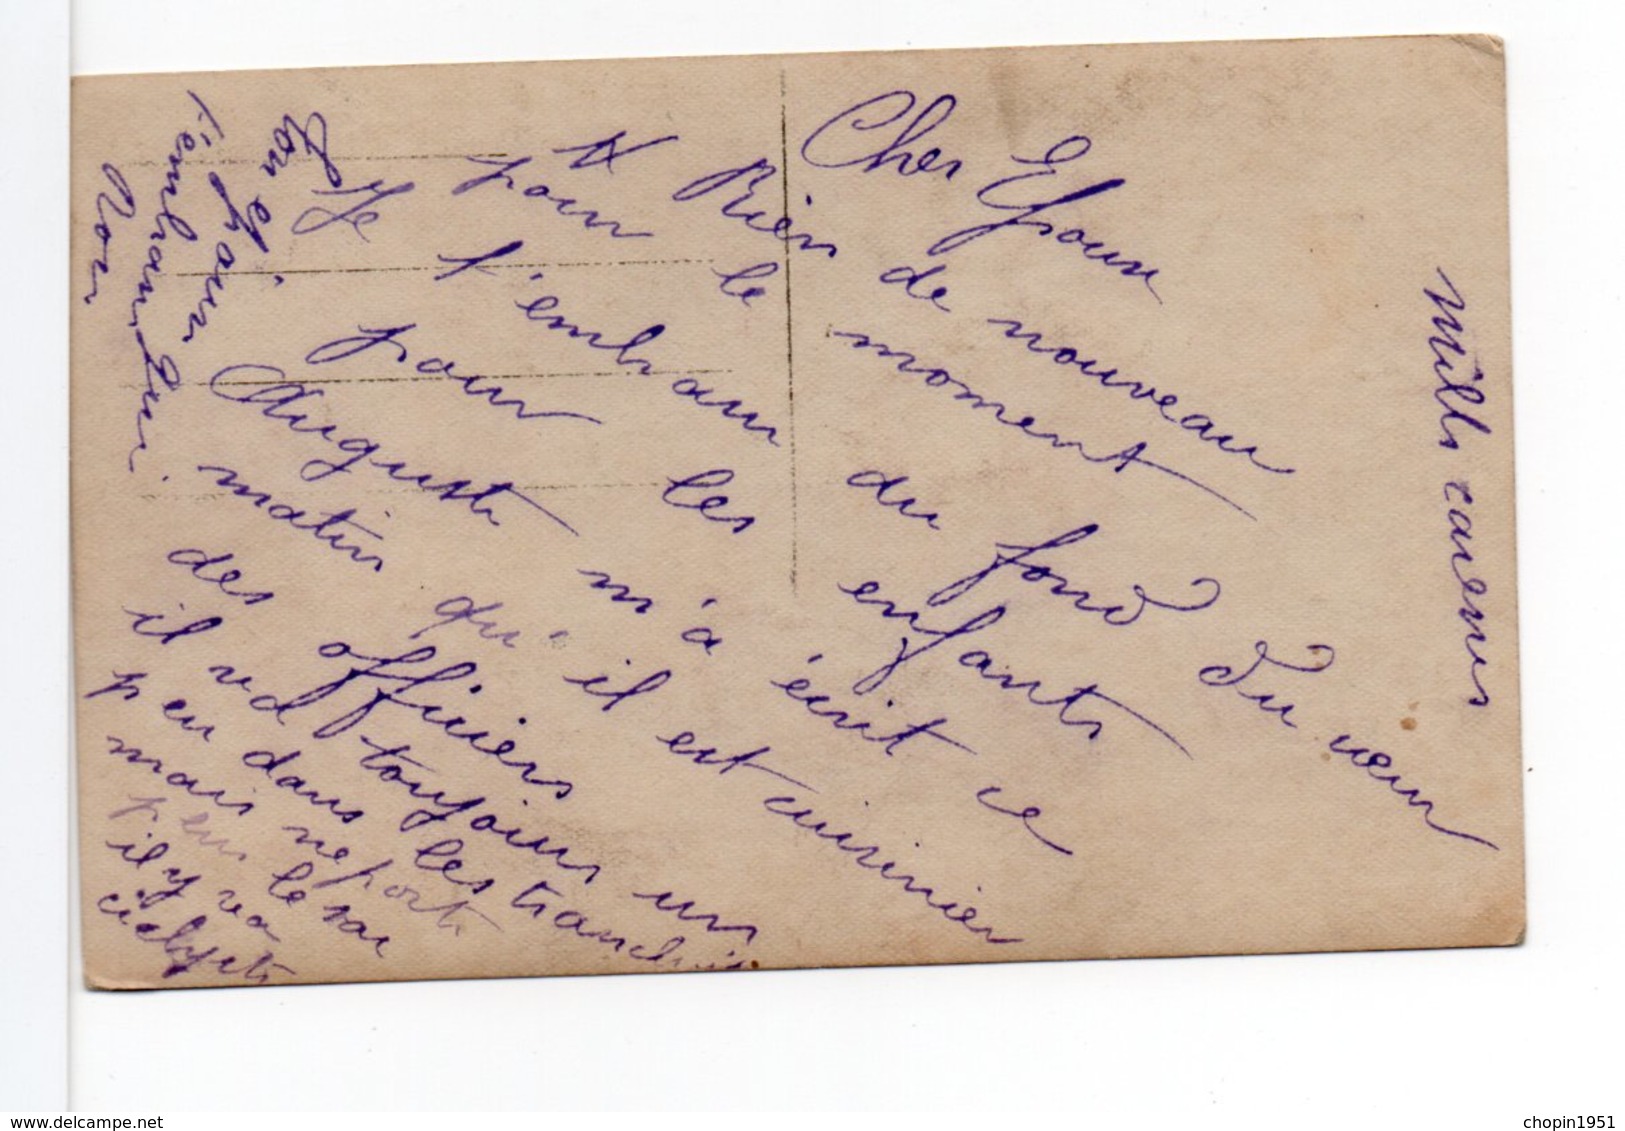 Cher Epoux
Rien de nouveau
pour le moment
Je t'embrasse du fond du cœur
pour les enfants
Auguste m'a écrit ce
matin qu'il est cuisinier
des officiers
il va toujours un
peu dans les tranchées
mais ne porte
le sac
il y va
Mills caresses
chopin1951